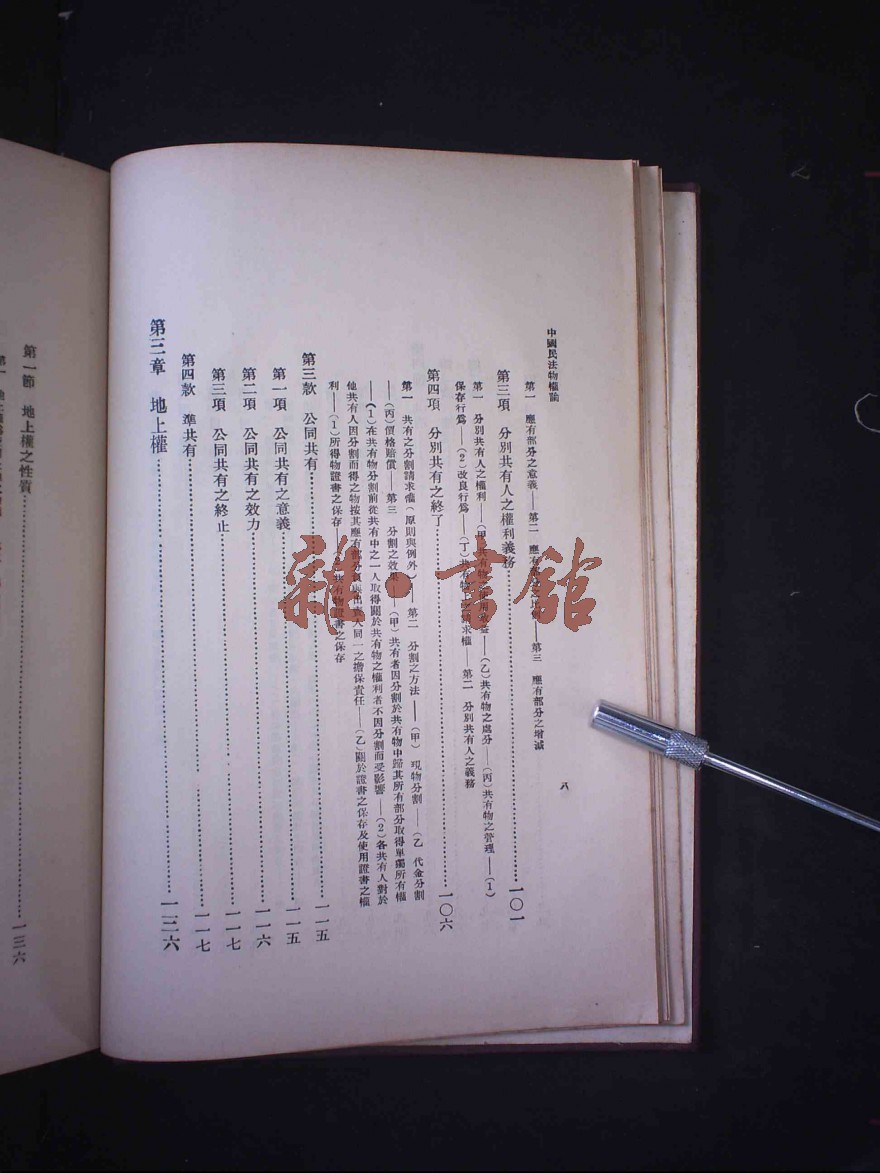 中國民法物權論
八
第一　應有部分之意義——第二　應有部分之——第三　應有部分之增減
第三項　分別共有人之權利義務……一〇一
第一　分別共有人之權利——(甲)共有物之——(乙)共有物之處分——(丙)共有物之管理——(1)
保存行爲——(2)改良行爲——(丁)共有物上之請求權——第二　分別共有人之義務
第四項　分別共有之終了……一〇六
第一　共有之分割請求權(原則與例外)——第二　分割之方法——(甲)現物分割——(乙)代金分割
——(丙)價格賠償——第三　分割之效果——(甲)共有者因分割於共有物中歸其所有部分取得單獨所有權
——(1)在共有物分割前從共有中之一人取得關於共有物之權利者不因分割而受影響——(2)各共有人對於
他共有人因分割而得之物按其應有部分負與出賣人同一之擔保責任——(乙)關於證書之保存及使用證書之權
利——(1)所得物證書之保存——(2)共有物證書之保存
第三款　公同共有……一一五
第一項　公同共有之意義……一一五
第二項　公同共有之效力……一一六
第三項　公同共有之終止……一一七
第四款　準共有……一一七
第三章　地上權……一三六
第一節　地上權之性質……一三六
雜·書館